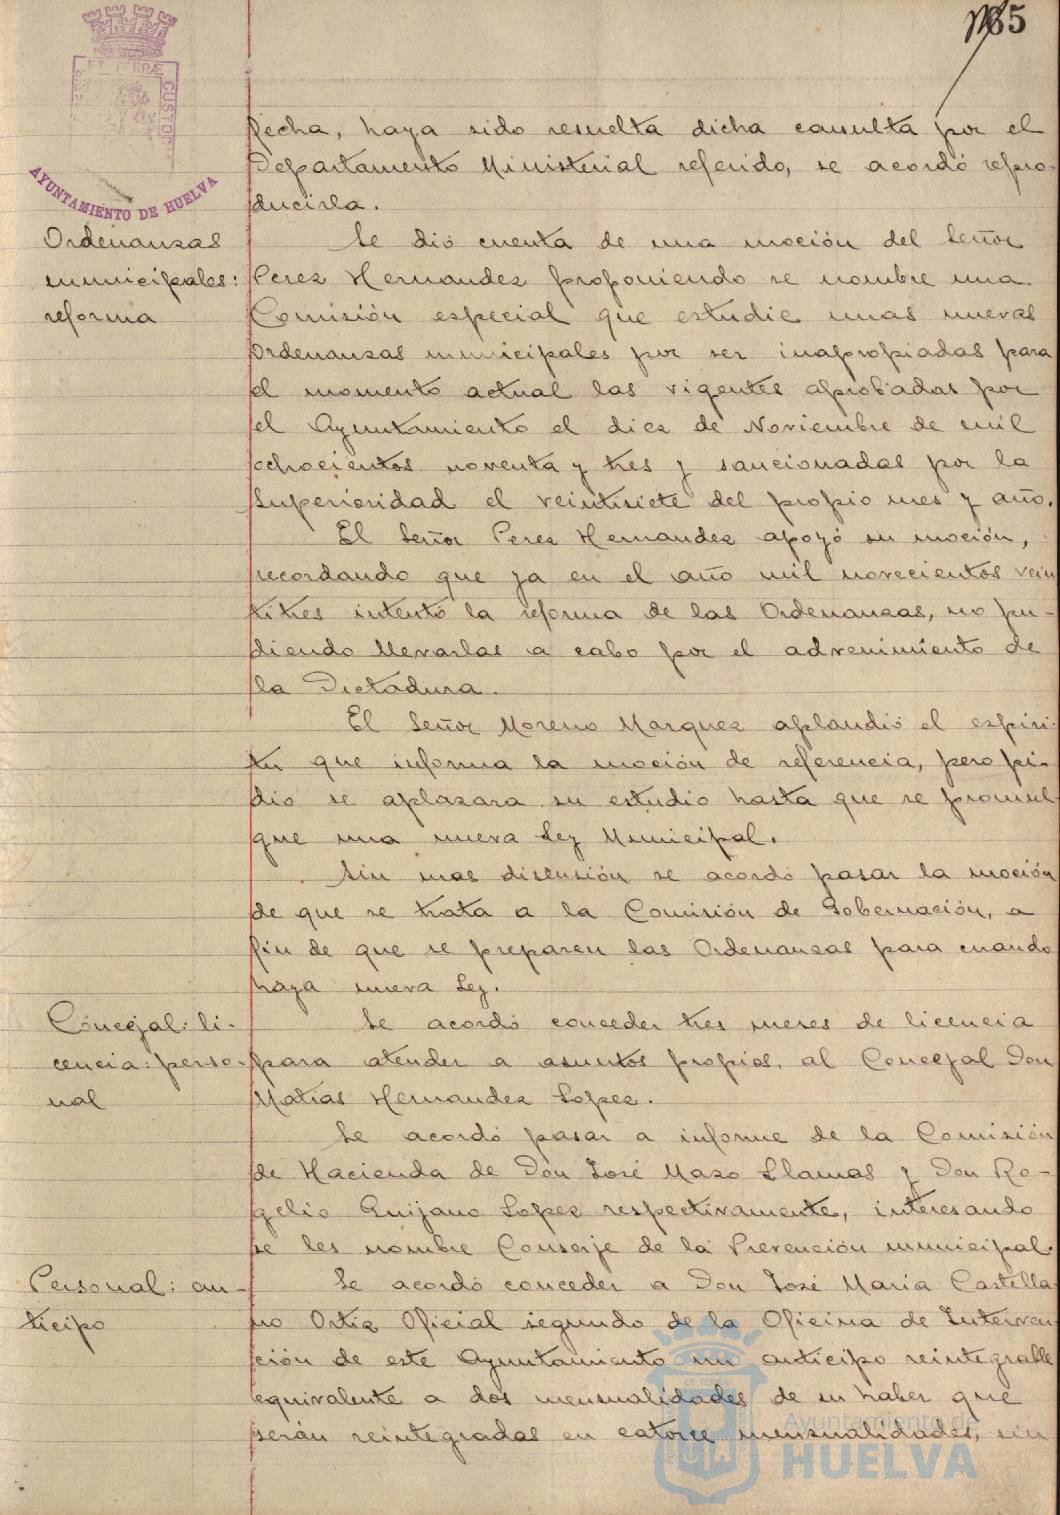 185
ET TERRÆ CUSTOD
AYUNTAMIENTO DE HUELVA
fecha, haya sido resuelta dicha consulta por el
Departamento Ministerial referido, se acordó repro-
ducirla.
Ordenanzas
municipales:
reforma
Se dió cuenta de una moción del Señor
Perez Hernandez proponiendo se nombre una
Comisión especial que estudie unas nuevas
Ordenanzas municipales por ser inapropiadas para
el momento actual las vigentes aprobadas por
el Ayuntamiento el diez de Noviembre de mil
ochocientos noventa y tres y sancionadas por la
Superioridad el veintisiete del propio mes y año.
El Señor Perez Hernandez apoyó su moción,
recordando que ya en el año mil novecientos vein
titres intentó la reforma de las Ordenanzas, no pu-
diendo llevarlas a cabo por el advenimiento de
la Dictadura.
El Señor Moreno Marquez aplaudió el espiri-
tu que informa la moción de referencia, pero pi-
dió se aplazara su estudio hasta que se promul
gue una nueva Ley Municipal.
Sin mas discusión se acordó pasar la moción
de que se trata a la Comisión de Gobernación, a
fin de que se preparen las Ordenanzas para cuando
haya nueva Ley.
Concejal: li-
cencia: perso-
nal
Se acordó conceder tres meses de licencia
para atender a asuntos propios, al Concejal Don
Matías Hernandez Lopez.
Se acordó pasar a informe de la Comisión
de Hacienda de Don José Mazo Llamas y Don Ro-
gelio Quijano Lopez respectivamente, interesando
se les nombre Conserje de la Prevención municipal.
Personal: an-
ticipo
Se acordó conceder a Don José María Castella
no Ortiz Oficial segundo de la Oficina de Interven
ción de este Ayuntamiento un anticipo reintegrable
equivalente a dos mensualidades de su haber que
serán reintegradas en catorce mensualidades, sin
Ayuntamiento de
HUELVA